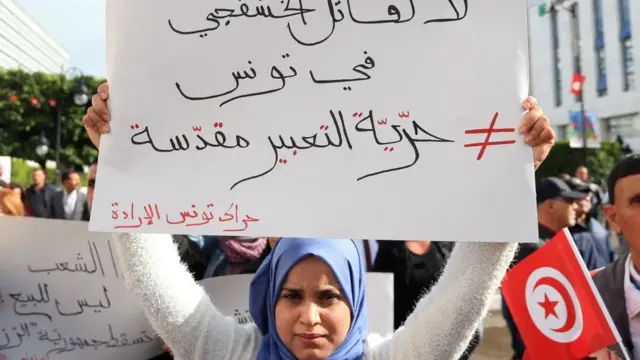 لا لقاتل خشقجي
في تونس
# حرّيّة التعبير مقدّسة
حراك تونس الإرادة
الشعب
ليس للبيع
جمهورية